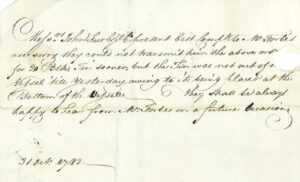 Messrs. Johnston & Co present best Compts. to Mr Forbes
are sorry they could not transmit him the above order
for 20 Tin sooner, but the Tin was not out of
Vessel 'till Yesterday owing to its being placed at the
Bottom of the Vessel they shall be always
happy to hear from Mr Forbes on a future Occasion
31 Octr. 1782